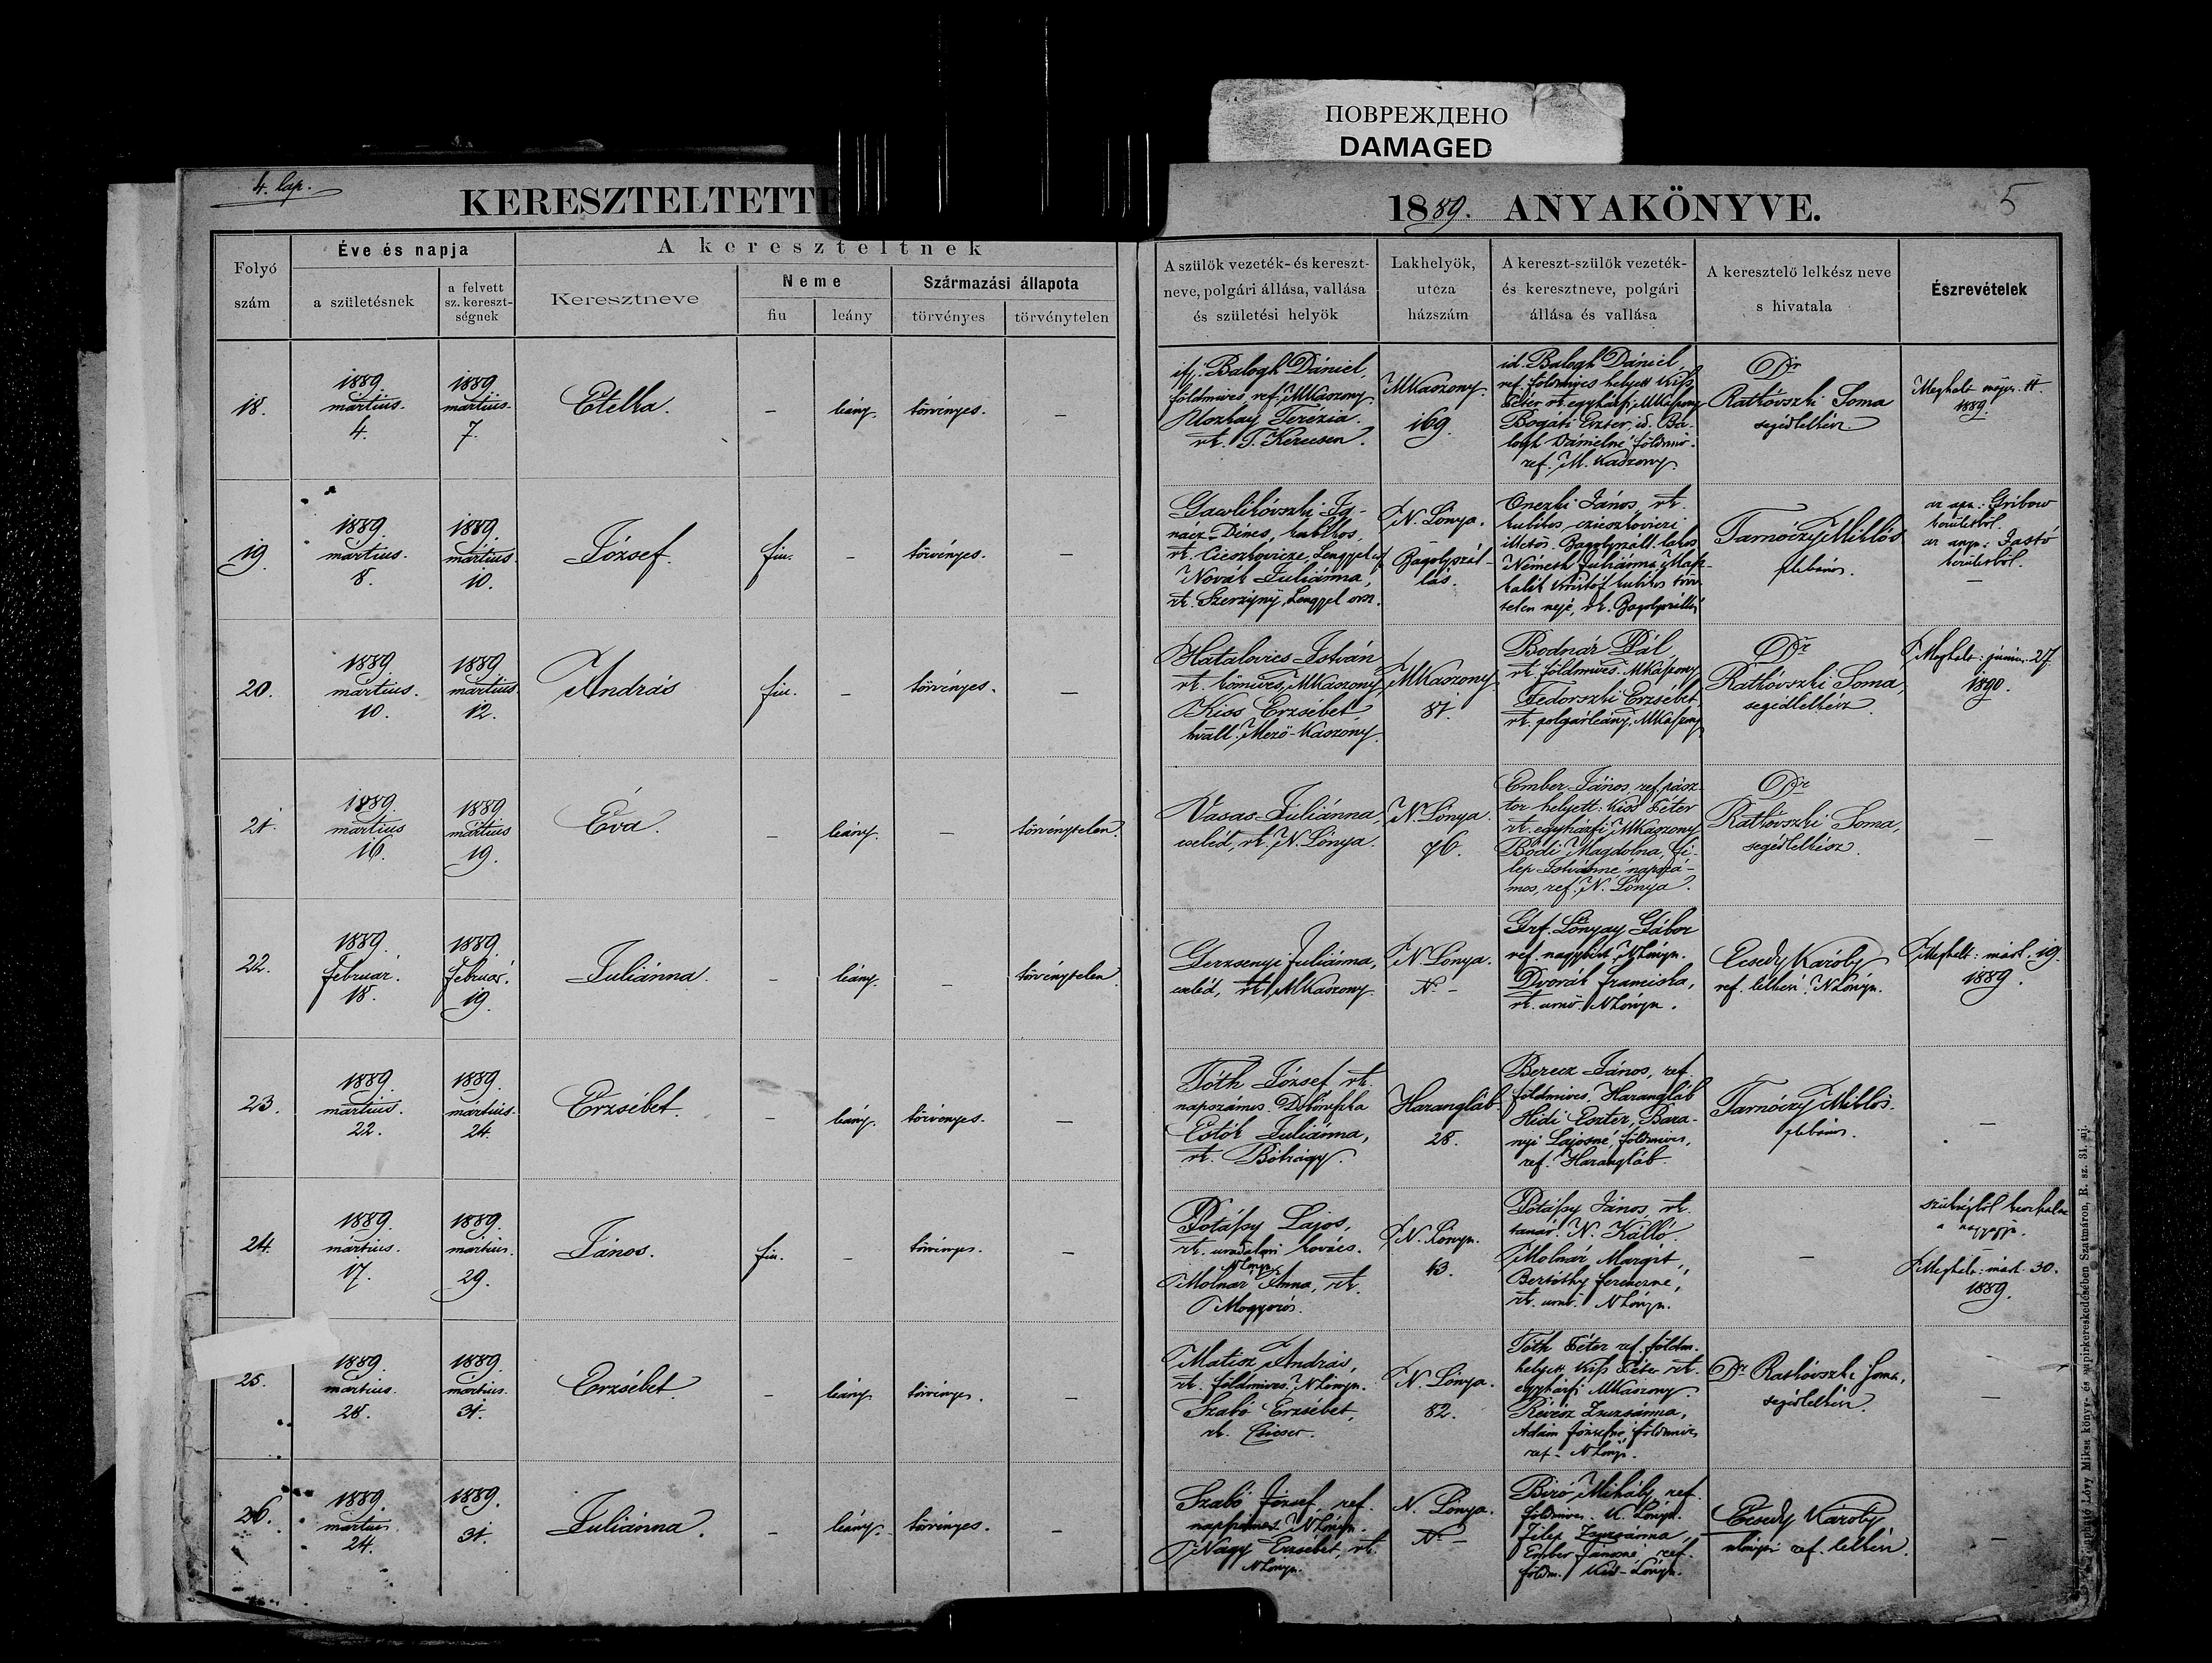 ПОВРЕЖДЕНО
DAMAGED
4. lap.
KERESZTELTETTE
1889. ANYAKÖNYVE.
5
Folyó szám
Éve és napja
a születésnek
a felvett sz. kereszt-ségnek
A kereszteltnek
Keresztneve
Neme
fiu
leány
Származási állapota
törvényes
törvénytelen
A szülők vezeték- és kereszt-
neve, polgári állása, vallása
és születési helyök
Lakhelyök,
utcza
házszám
A kereszt-szülők vezeték-
és keresztneve, polgári
állása és vallása
A keresztelő lelkész neve
s hivatala
Észrevételek
18.
1889. martius. 4.
1889. martius. 7.
Etelka
–
leány.
törvényes.
–
ifj. Balogh Dániel,
földmives, ref. MKaszony.
Terézia.
rk. T. Kerecsen.
MKaszony.
169.
id. Balogh Dániel,
ref. földmives helyett Kiss
Péter rk. egyházfi, MKaszony
Bogáti Eszter, id. Ba-
logh Dánielné földmű.
ref. M. Kaszony.
Dr
Ratkovszki Soma
segédlelkész
Meghalt
1889.
19.
1889. martius. 8.
1889. martius. 10.
József.
fiu.
–
törvényes.
–
Gawlikovszki Ig-
nácz-Dénes, kubikos,
rk. Cieszkovicze, Lengyel
Novák Juliánna,
rk. Lengyel orsz.
N. Lónya.
–
Bagolyszál-
lás.
János, rk.
kubikos,
Bagolyszáll. lakos
Németh Juliánna
kubikos
neje, rk.
Tarnóczy Miklós
plebános.
az apa: Gribow
kerületből.
az anya: Jasló
kerületből.
–
20.
1889. martius. 10.
1889. martius. 12.
András
fiu.
–
törvényes.
–
Hatalovics István
rk. MKaszony
Kiss Erzsébet,
hváll. Mező-Kaszony.
MKaszony
81.
Bodnár Pál
rk. földmives. MKaszony
Fedorszki Erzsébet
rk. polgárleány, MKaszony
Dr
Ratkovszki Soma,
segédlelkész
Meghalt: június. 27.
1890.
21.
1889. martius 16.
1889. martius 19.
Éva.
–
leány.
–
törvénytelen.
Vasas Juliánna,
cseléd, rk. N. Lónya.
N. Lónya.
76.
Ember János, ref. pász-
tor helyett: Kiss Péter
rk. egyházfi, MKaszony
Bódi Magdolna, Fi-
lep Istvánné, napszá-
mos, ref. N. Lónya.
Dr
Ratkovszki Soma,
segédlelkész.
–
22.
1889. február. 18.
1889. február. 19.
Juliánna.
–
leány.
–
törvénytelen
Gerzsenyi Juliánna,
cseléd, rk. MKaszony.
N. Lónya.
N. –
Grf. Lónyay Gábor
ref. nagybirt. NLónya.
Dvorák Franciska,
rk. NLónya.
Ecsedy Károly
ref. lelkész. NLónya.
Meghalt: márt. 19.
1889.
23.
1889. martius. 22.
1889. martius. 24.
Erzsébet.
–
leány.
törvényes.
–
Tóth József rk.
napszámos.
Estók Juliánna,
rk. Bótrágy.
Harangláb
28.
Berecz János, ref.
földmives, Harangláb
Hidi Eszter, Bara-
nyi Lajosné, földmives,
ref. Harangláb.
Tarnóczy Miklós.
plebános.
–
24.
1889. martius. 17.
1889. martius. 29.
János.
fiu.
–
törvényes.
–
Potássy Lajos,
rk. uradalmi kovács.
NLónya.
Molnár Anna, rk.
Mogyorós.
N. Lónya.
43.
Potássy János, rk.
tanár. N. Kálló.
Molnár Margit,
Ferenczné,
rk. NLónya.
–
szükségből
a nagyapja.
–
Meghalt: márt. 30.
1889.
25.
1889. martius. 28.
1889. martius. 31.
Erzsébet
–
leány
törvényes.
–
Matisz András,
rk. földmives. NLónya.
Szabó Erzsébet,
rk. Csicser.
N. Lónya.
82.
Tóth Péter ref. földm.
helyett Kiss Péter rk.
egyházfi MKaszony.
Révész Zsuzsánna,
Ádám Józsefné, földmives
ref. NLónya.
Dr Ratkovszki Soma,
segédlelkész.
–
26.
1889. martius 24.
1889. 31.
Juliánna.
–
leány.
törvényes.
–
Szabó József, ref.
napszámos NLónya.
Nagy Erzsébet, rk.
NLónya.
N. Lónya.
N. –
Biró Mihály, ref.
földmives. K. Lónya.
Filep Zsuzsánna,
Ember Jánosné ref.
földm. Kis-Lónya.
Ecsedy Károly
nlónyai ref. lelkész.
–
Lévy Miksa könyv- és papirkereskedésében Szatmáron, R. sz. 31. uj.